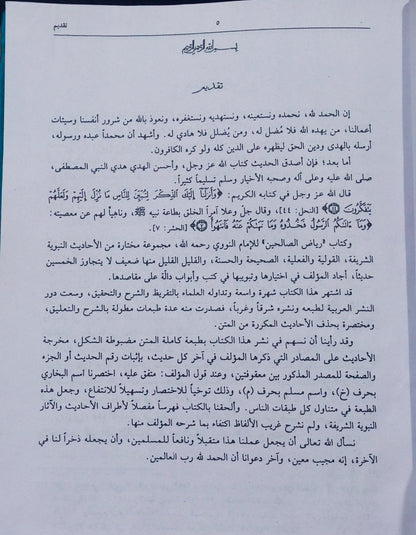 تقديم ٥
بسم الله الرحمن الرحيم
تقديم
إن الحمد لله، نحمده ونستعينه، ونستهديه ونستغفره، ونعوذ بالله من شرور أنفسنا وسيئات
أعمالنا، من يهده الله فلا مُضل له، ومن يُضلل فلا هادي له. وأشهد أن محمداً عبده ورسوله،
أرسله بالهدى ودين الحق ليظهره على الدين كله ولو كره الكافرون.
أما بعد؛ فإن أصدق الحديث كتاب الله عز وجل، وأحسن الهدي هدي النبي المصطفى،
صلى الله عليه وعلى آله وصحبه الأخيار وسلم تسليماً كثيراً.
قال الله عز وجل في كتابه الكريم: ﴿وَأَنزَلْنَا إِلَيْكَ الذِّكْرَ لِتُبَيِّنَ لِلنَّاسِ مَا نُزِّلَ إِلَيْهِمْ وَلَعَلَّهُمْ
يَتَفَكَّرُونَ﴾ [النحل: ٤٤]، وقال جلّ وعلا آمراً الخلق بطاعة نبيه ﷺ، وناهياً لهم عن معصيته:
﴿وَمَا آتَاكُمُ الرَّسُولُ فَخُذُوهُ وَمَا نَهَاكُمْ عَنْهُ فَانتَهُوا﴾ [الحشر: ٧].
وكتاب «رياض الصالحين» للإمام النووي رحمه الله، مجموعة مختارة من الأحاديث النبوية
الشريفة، القولية والفعلية، الصحيحة والحسنة، والقليل القليل منها ضعيف لا يتجاوز الخمسين
حديثاً، أجاد المؤلف في اختيارها وتبويبها في كتب وأبواب دالّة على مقاصدها.
قد اشتهر هذا الكتاب شهرة واسعة وتداوله العلماء بالتقريظ والشرح والتحقيق، وسعت دور
النشر العربية لطبعه ونشره شرقاً وغرباً، فصدرت منه عدة طبعات مطولة بالشرح والتعليق،
ومختصرة بحذف الأحاديث المكررة من المتن.
وقد رأينا أن نسهم في نشر هذا الكتاب بطبعة كاملة المتن مضبوطة الشكل، مخرجة
الأحاديث على المصادر التي ذكرها المؤلف في آخر كل حديث، بإثبات رقم الحديث أو الجزء
والصفحة للمصدر المذكور بين معقوفتين، وعند قول المؤلف: متفق عليه، اختصرنا اسم البخاري
بحرف (خ)، واسم مسلم بحرف (م)، وذلك توخياً للاختصار وتسهيلاً للانتفاع، وجعل هذه
الطبعة في متناول كل طبقات الناس. وألحقنا بالكتاب فهرساً مفصلاً لأطراف الأحاديث والآثار
النبوية الشريفة، ولم نشرح غريب الألفاظ اكتفاء بما شرحه المؤلف منها.
نسأل الله تعالى أن يجعل عملنا هذا متقبلاً ونافعاً للمسلمين، وأن يجعله ذخراً لنا في
الآخرة، إنه مجيب معين، وآخر دعوانا أن الحمد لله رب العالمين.